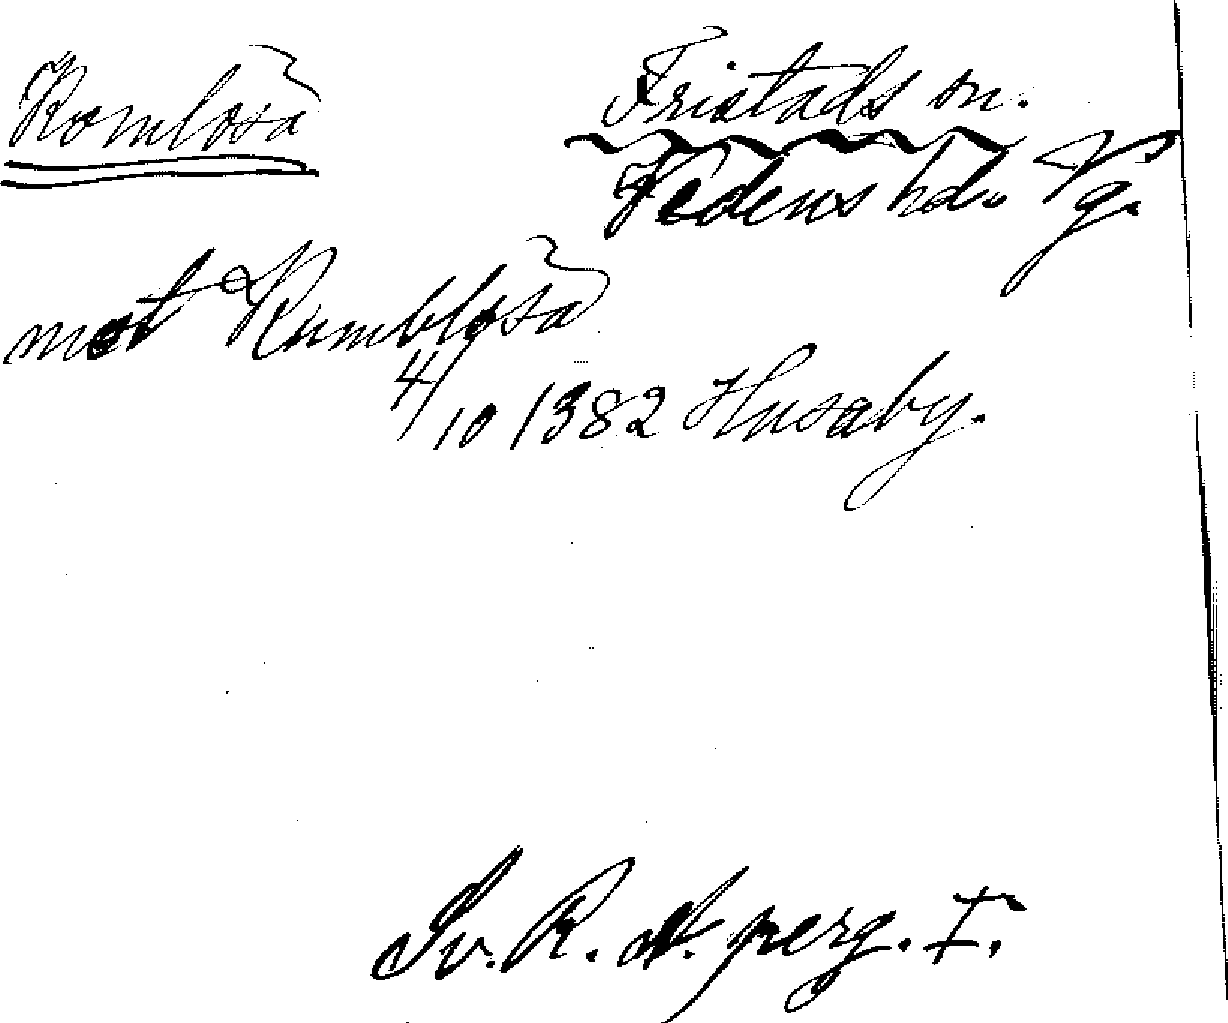 Komlösa Fristads sn.
Vedens hd. Vg.
mot Kumblösa
4/10 1382 Husaby.
Sv. R. A. perg. I.